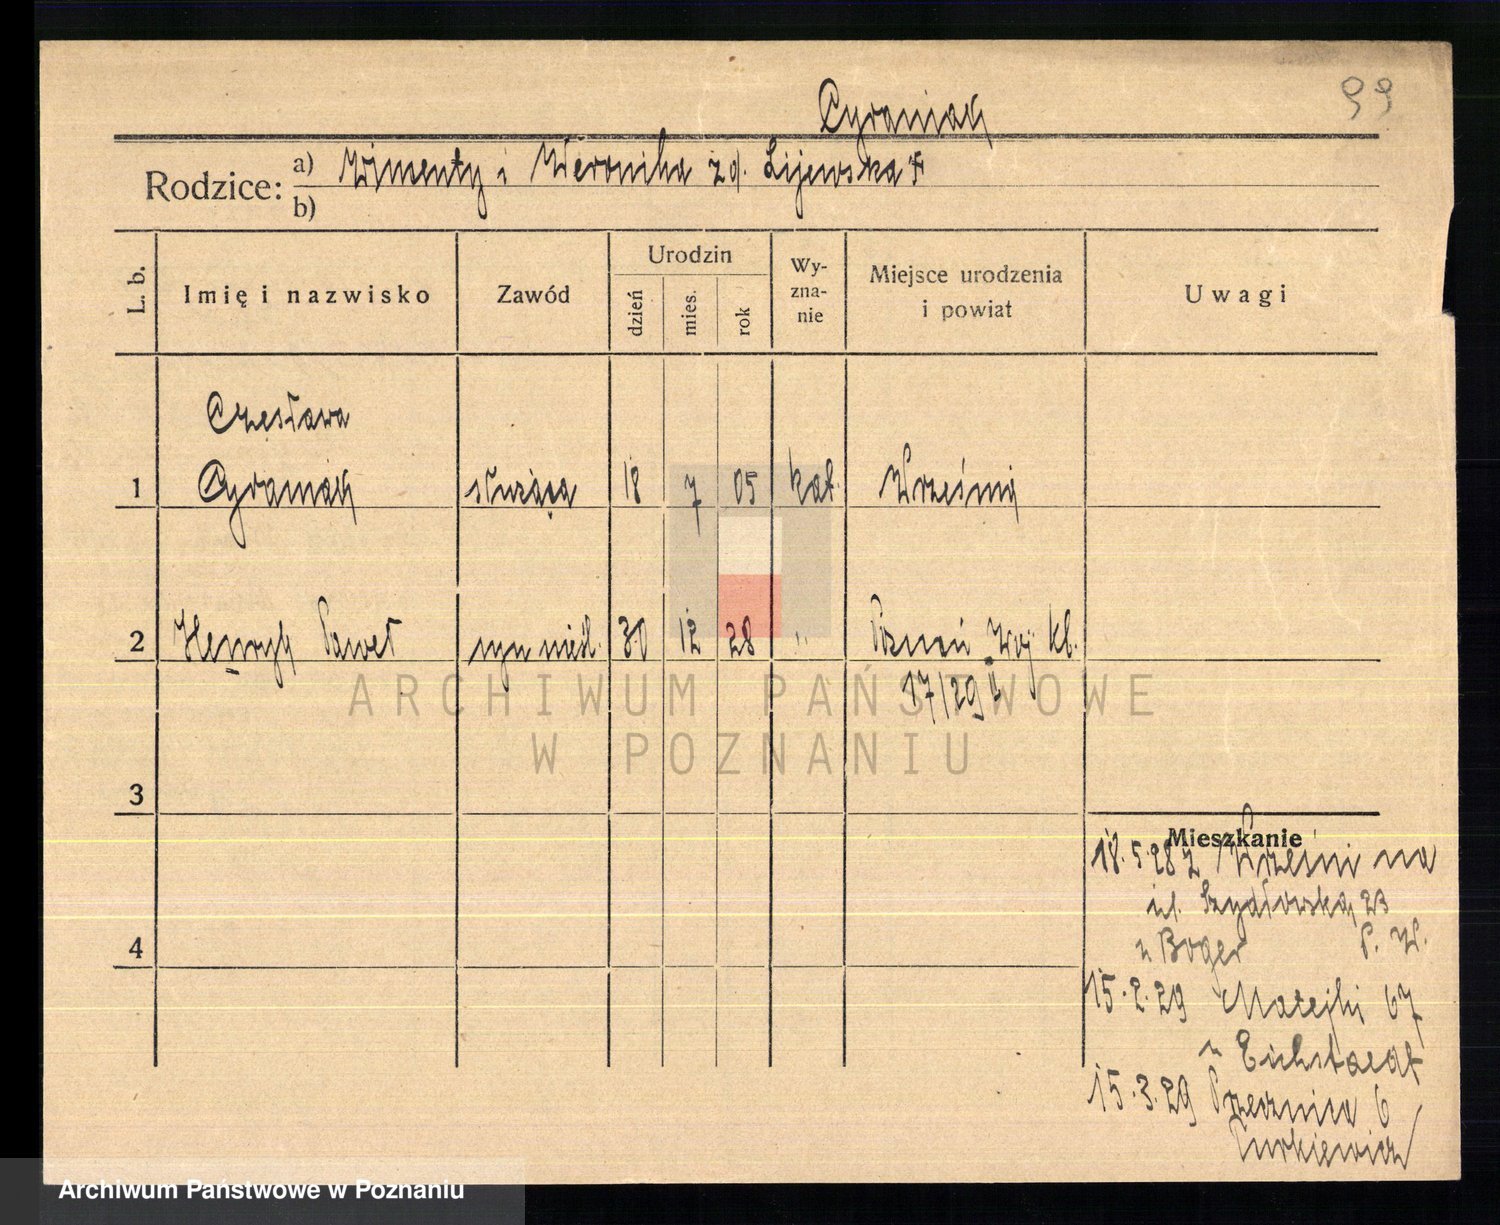 99
Cyraniak
Rodzice: a) Wincenty i Weronika z d. Lijewska
b)
L. b.
Imię i nazwisko
Zawód
Urodzin
dzień
mies.
rok
Wy-
zna-
nie
Miejsce urodzenia
i powiat
Uwagi
Czesława
1 Cyraniak służąca 18 7 05 kat. Września
2 Henryk Paweł syn nieśl. 30 12 28 " Poznań
17/29
ARCHIWUM PAŃSTWOWE
W POZNANIU
3
Mieszkanie
18.5.28 z Wrześni na
ul. Szydłowską 23
4
u Boger P. W.
15.2.29 Matejki 67
u Eichstaedt
15.3.29 Przecznica 6
Turkiewicz
Archiwum Państwowe w Poznaniu